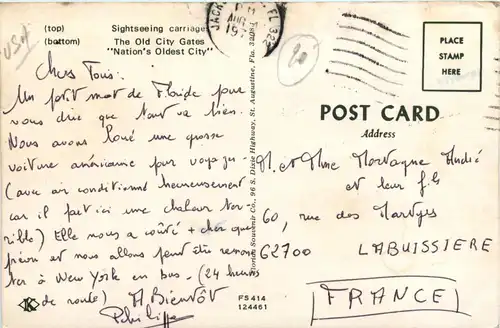 USA
(top) Sightseeing carriages
(bottom) The Old City Gates
"Nation's Oldest City"
PM
AUG
19
FL 322
20
PLACE
STAMP
HERE
POST CARD
Address
Chers Tous:
Un petit mot de Floride pour
vous dire que tout va bien.
Nous avons loué une grosse
voiture américaine pour voyager
(avec air conditionné heureusement
car il fait ici une chaleur ter-
rible) Elle nous a coûté + cher que
prévu et nous allons peut être remon-
ter à New York en bus - (24 heures
de route) A Bientôt
Philippe
Florida Souvenir Co., 96 S. Dixie Highway, St. Augustine, Fla.
M. et Mme Mortagne André
et leur fils
60, rue des Martyrs
62700 LABUISSIERE
FRANCE
K
FS414
124461